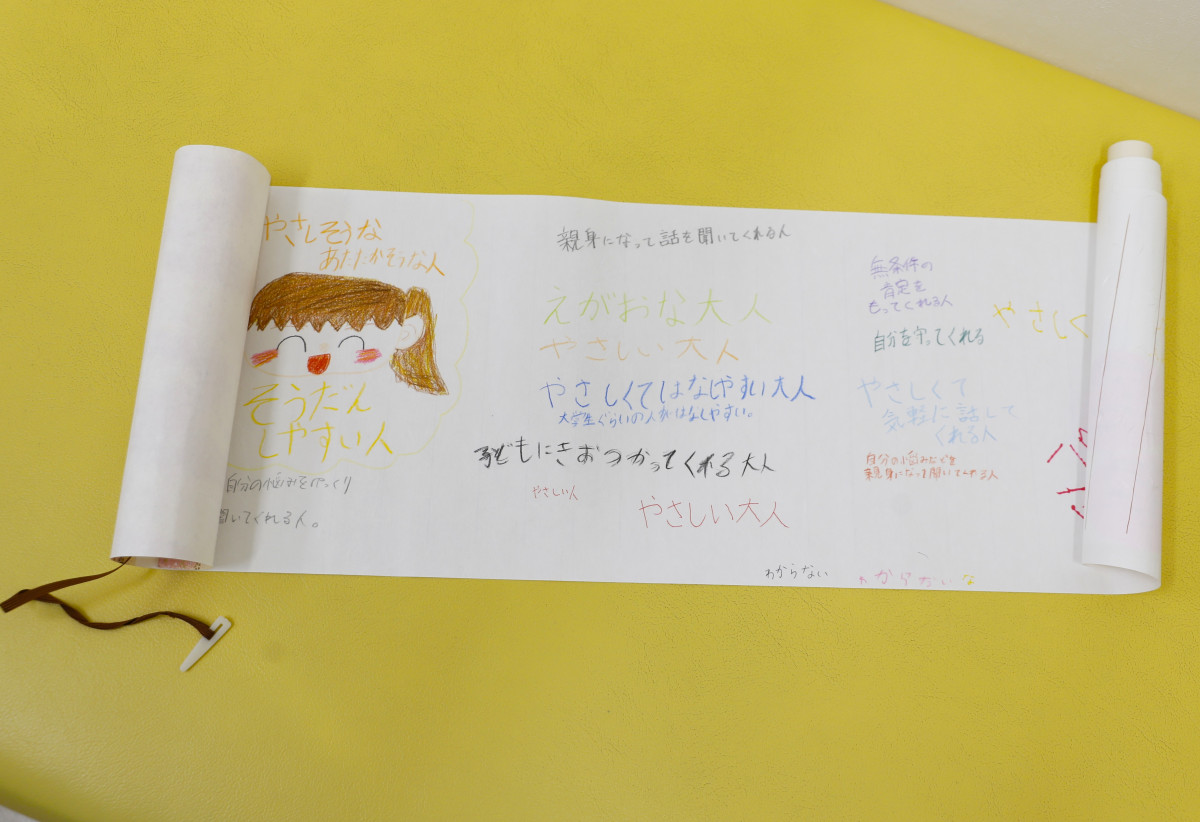 やさしそうな
あたたかそうな人
そうだん
しやすい人
自分の悩みをじっくり
聞いてくれる人。
親身になって話を聞いてくれる人
えがおな大人
やさしい大人
やさしくてはなしやすい大人
大学生ぐらいの人がはなしやすい。
子どもにきおつかってくれる大人
やさしい人
やさしい大人
わからない
無条件の
肯定を
もってくれる人
自分を守ってくれる
やさしくて
気軽に話して
くれる人
自分の悩みなどを
親身になって聞いてくれる人
わからないな
やさしく